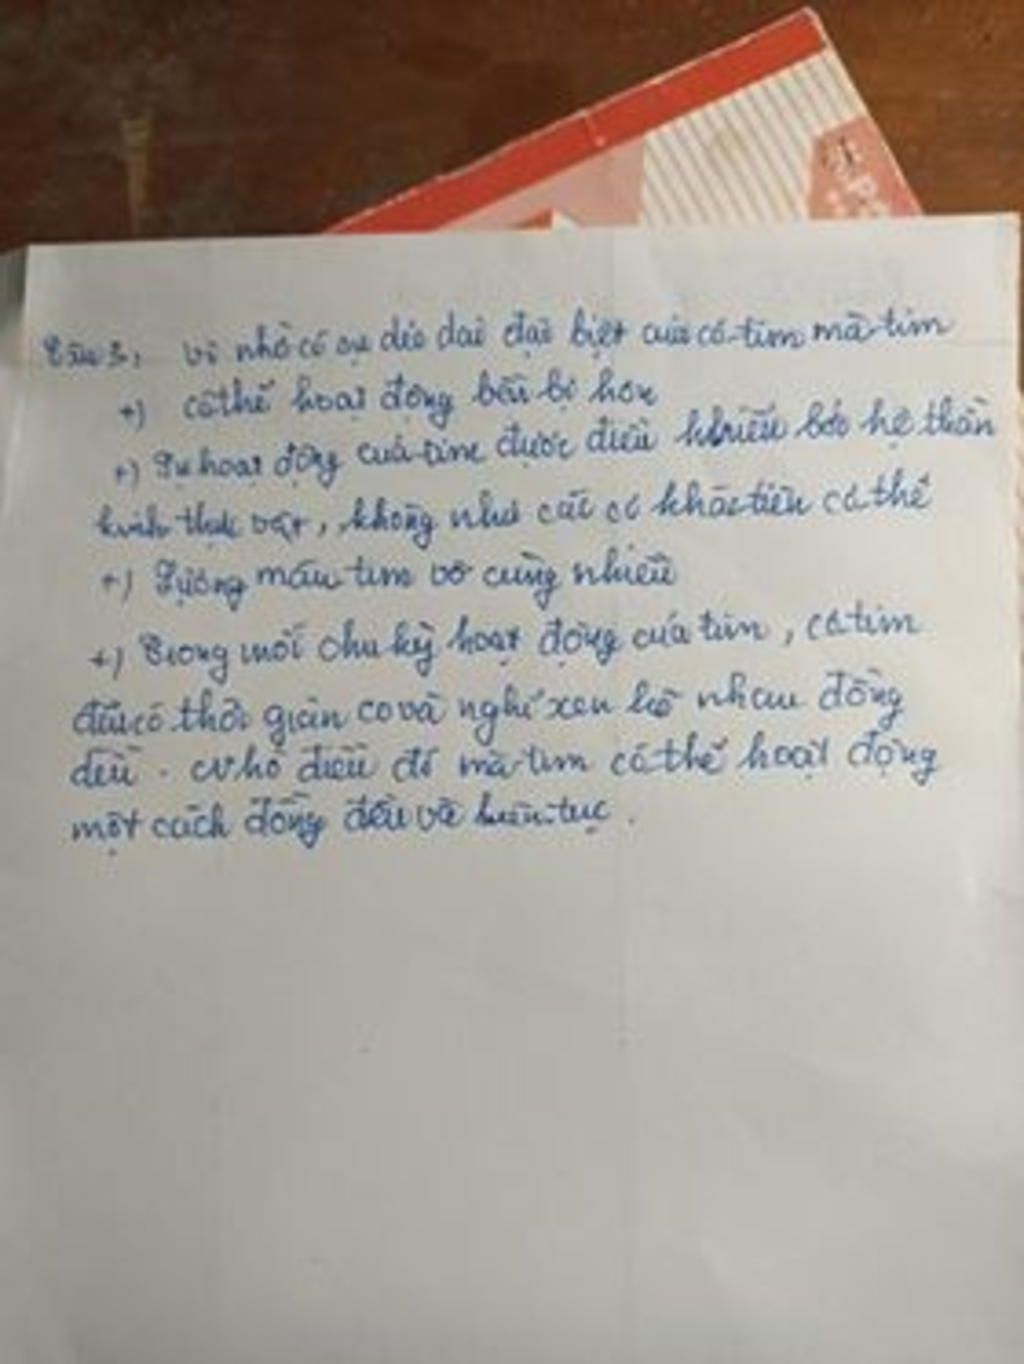 Câu 3, vì nhờ có sự dẻo dai đặc biệt của cơ tim mà tim
+) có thể hoạt động bền bỉ hơn
+) Sự hoạt động của tim được điều khiển bởi hệ thần
kinh thực vật, không như các cơ khác trên cơ thể
+) Lượng máu tim vô cùng nhiều
+) Trong mỗi chu kỳ hoạt động của tim, cơ tim
đều có thời gian co và nghỉ xen kẽ nhau đồng
đều. Nhờ điều đó mà tim có thể hoạt động
một cách đồng đều và liên tục.